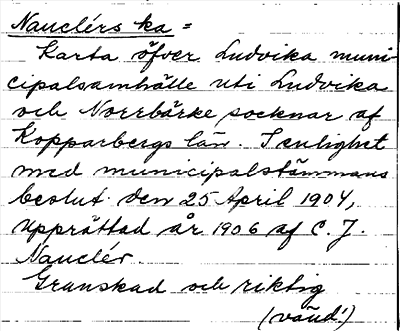 Nauclérs ka =
Karta öfver Ludvika muni-
cipalsamhälle uti Ludvika
och Norrbärke socknar af
Kopparbergs län. I enlighet
med municipalstämmans
beslut den 25 April 1904,
upprättad år 1906 af C. J.
Nauclér.
Granskad och riktig
(vänd!)